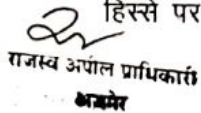 हिस्से पर
राजस्व अपील प्राधिकारी
अजमेर